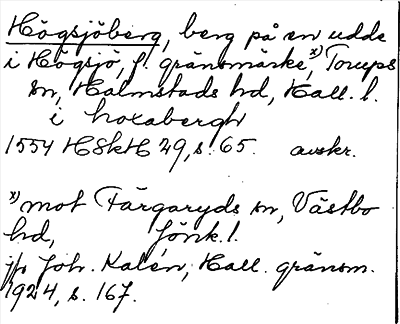 Högsjöberg, berg på en udde
i Högsjö, f. gränsmärke,x) Torups
sn, Halmstads hd, Hall. l.
i hoxabergh
1554 HSkH 29, s. 65. avskr.
x) mot Färgaryds sn, Västbo
hd, Jönk. l.
jfr Joh. Kalén, Hall. gränsm.
1924, s. 167.